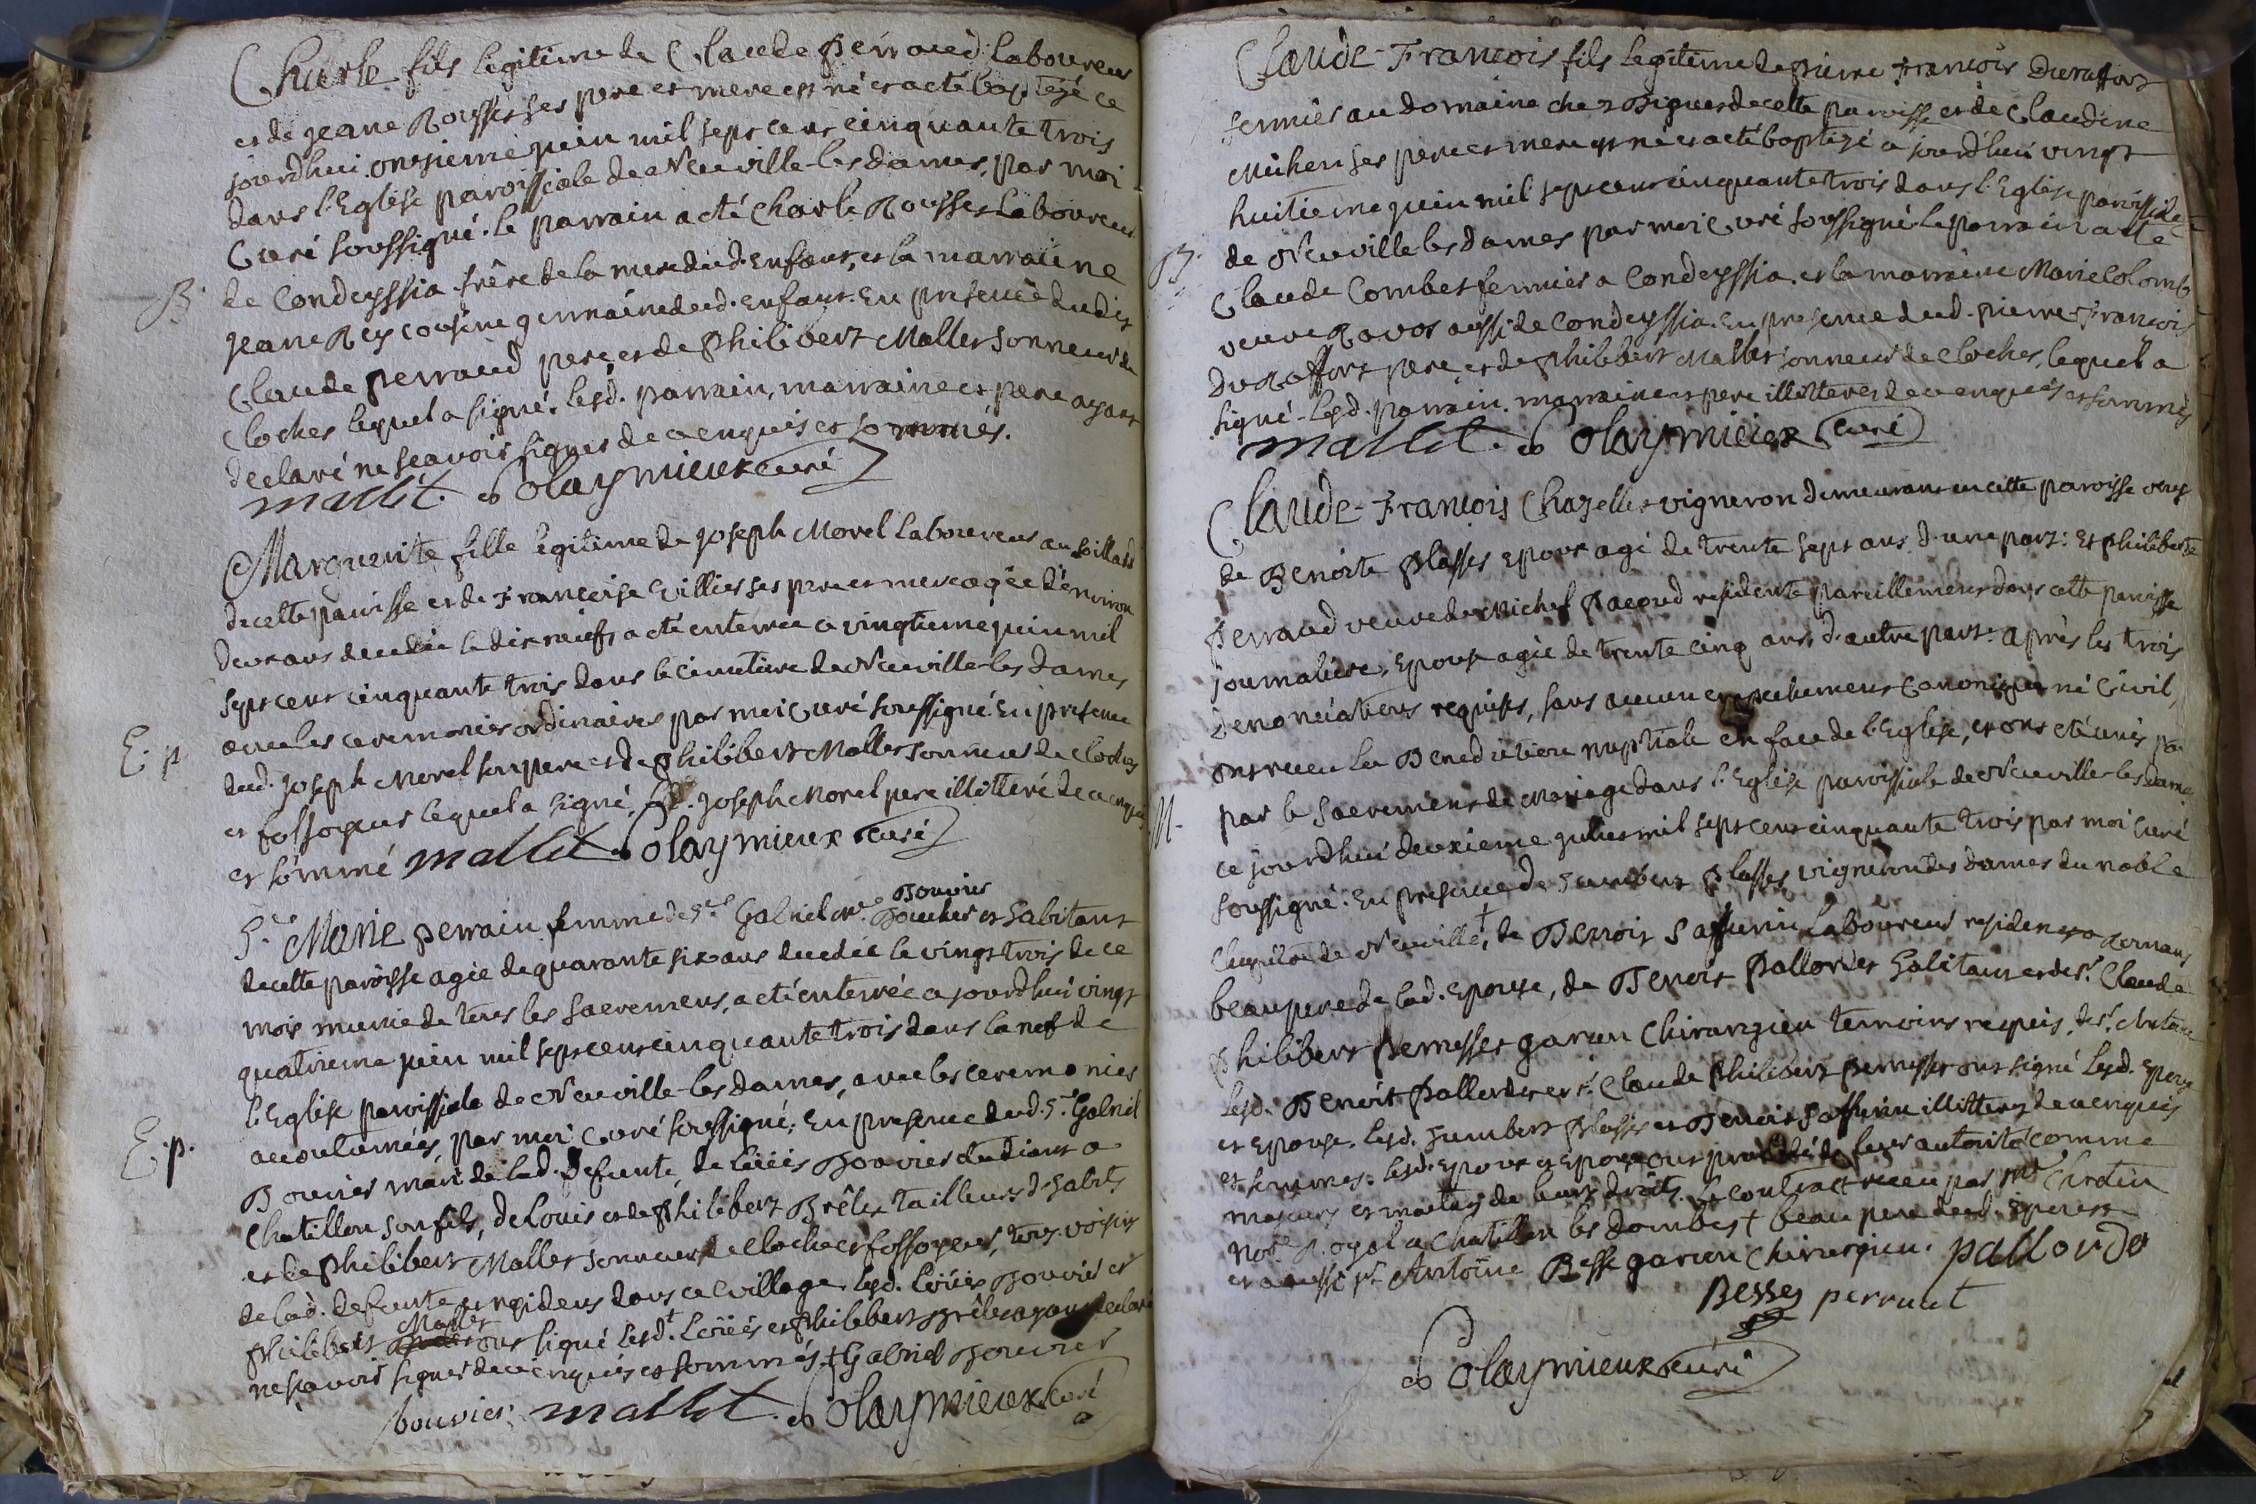 Charle fils legitime de Claude Perraud Laboureur
et de Jeane Rousset ses pere et mere est né et a eté baptizé ce
jourdhui onzieme juin mil sept cent cinquante trois
dans l'Eglise paroissiale de Neuville-les Dames, par moi
Curé soussigné. le parrain a eté Charle Rousset Laboureur
B.
de Condeyssia frère de la mere dud. Enfant, et la marraine
Jeane Rey cousine germaine dud. enfant. En presence dudit
Claude Perraud pere, et de Philibert Mallet sonneur de
Cloches lequel a signé. lesd. parrain, marraine et pere ayant
declaré ne scavoir signer de ce enquis et sommés.
mallet. Colaymieux curé
Marguerite fille legitime de Joseph Morel Laboureur au
de cette paroisse et de Françoise Villier ses pere et mere agée d'environ
deux ans decedée le dix neuf a eté enterrée ce vingtieme juin mil
sept cent cinquante trois dans le cimetiere de Neuville les Dames
E. p.
avec les ceremonies ordinaires par moi Curé soussigné. En presence
dud. Joseph Morel son pere et de Philibert Mallet sonneur de Cloches
et fossoyeur lequel a signé, led. Joseph Morel pere illitteré de ce enquis
et sommé mallet Colaymieux curé
Bouvier
Marie perrain femme de Sr. Gabriel et habitant
de cette paroisse agée de quarante six ans decedée le vingt trois de ce
mois munie de tous les sacremens, a eté enterrée ce jourdhui vingt
quatrieme juin mil sept cent cinquante trois dans la nef de
l'Eglise paroissiale de Neuville-les Dames, avec les ceremonies
E. p.
accoutumées, par moi Curé soussigné, En presence dud. Sr. Gabriel
Bouvier mari de lad. Defunte, de Loüis Bouvier etudiant a
Chatillon son fils, de Louis et de Philibert Brêlet tailleurs d'habits
et de Philibert Mallet sonneur de cloche et fossoyeur, tous voisins
de lad. defunte et residens dans ce village lesd. Loüis Bouvier et
Mallet
Philibert ont signé lesdt. Loüis et Philibert Brêlet ayant declaré
ne scavoir signer de ce enquis et sommés + Gabriel Bouvier
bouvier. mallet. Colaymieux Curé
Claude-François fils legitime de Pierre François Duraffort
fermier au domaine chez de cette paroisse et de Claudine
Michon ses pere et mere est né et a eté baptizé ce jourdhui vingt
huitieme juin mil sept cent cinquante trois dans l'Eglise paroissiale
B.
de Neuville les Dames par moi Curé soussigné. le parrain a eté
Claude Combet fermier a Condeyssia. et la marraine Marie Colomb
veuve Ravot aussi de Condeyssia. En presence dud. Pierre-François
Duraffort pere, et de Philibert Mallet sonneur de Cloches, lequel a
signé. lesd. parrain, marraine et pere illitteres de ce enquis et sommés
mallet. Colaymieux Curé
Claude-François Chazelle vigneron demeurant en cette paroisse veuf
de Benoite Plasset Epoux agé de trente sept ans d'une part: Et Philiberte
Perraud veuve de Michel Pacoud residente pareillement dans cette paroisse
journaliere, Epouse agée de trente cinq ans, d'autre part: après les trois
denonciations requises, sans aucun empechement Canonique ni Civil,
ont receu la Benediction nuptiale en face de l'Eglise, et ont eté unis par
M.
par le Sacrement de Mariage dans l'Eglise paroissiale de Neuville-les Dames
ce jourdhui deuxieme juillet mil sept cent cinquante trois par moi Curé
soussigné. En presence de Humbert Plasset vigneron des Dames du noble
Chapitre de Neuville,+ de Benoit Saffurin Laboureur resident a Romans
beaupere de lad. Epouse, de Benoit Pallordet habitant et de Sr. Claude
Philibert Perrusset garcon Chirurgien temoins requis, de Sr. Antoine
lesd. Benoit Pallordet et Sr. Claude Philibert Perrusset ont signé lesd. Epoux
et Epouse. lesd. Humbert Plasset et Benoit Saffurin illitteres de ce enquis
et sommes. lesd. Epoux et Epouse ont procédé de leur autorité comme
majeurs et maitres de leurs droits. le contract receu par Me.
Notre. Royal a Chatillon les Dombes + beau pere dud. Epoux
et aussi Sr. Antoine Besse garcon Chirurgien. pallordet
Bessey perruset
Colaymieux curé